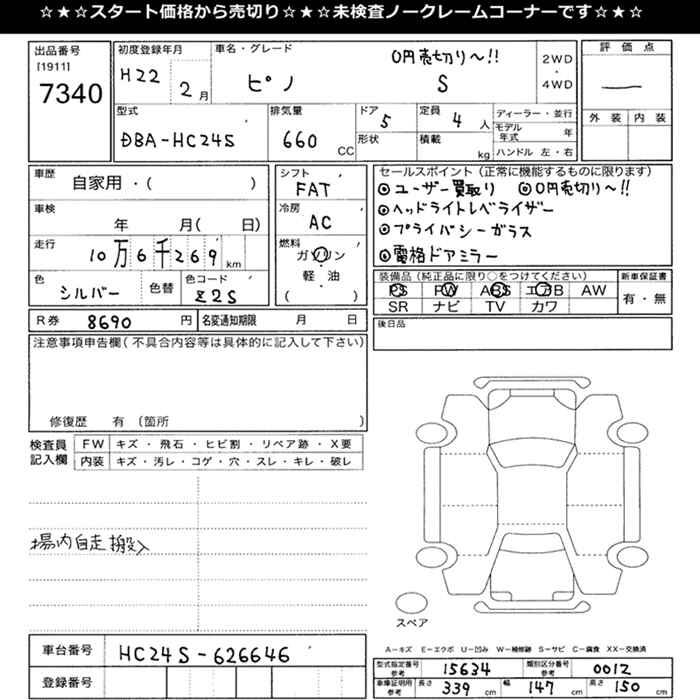 ☆★☆スタート価格から売切り☆★☆未検査ノークレームコーナーです☆★☆
出品番号
[1911]
7340
初度登録年月
H22 2月
車名・グレード
0円売切り〜!!
ピノ S
2WD
・
4WD
評価点
—
外装 内装
型式
DBA-HC24S
排気量
660 CC
ドア 5
形状
定員 4 人
積載 kg
ディーラー・並行
モデル年式 年
ハンドル 左・右
車歴 自家用・( )
車検 年 月( 日)
走行 10万6千269km
色 シルバー 色替
色コード Z2S
シフト
FAT
冷房
AC
燃料
ガソリン
軽・油
( )
セールスポイント(正常に機能するものに限ります)
◎ユーザー買取り ◎0円売切り〜!!
◎ヘッドライトレベライザー
◎プライバシーガラス
◎電格ドアミラー
装備品(純正品に限り○をつけてください)
PS PW ABS エアB AW
SR ナビ TV カワ
新車保証書
有・無
R券 8690 円
名変通知期限 月 日
後日品
注意事項申告欄(不具合内容等は具体的に記入して下さい)
修復歴 有(箇所 )
検査員記入欄
FW キズ・飛石・ヒビ割・リペア跡・X要
内装 キズ・汚レ・コゲ・穴・スレ・キレ・破レ
場内自走搬入
スペア
A-キズ E-エクボ U-凹み W-補修跡 S-サビ C-腐食 XX-交換済
車台番号 HC24S-626646
登録番号
型式指定番号 参考 15634
類別区分番号 参考 0012
車庫証明用 参考 長さ 339 cm 幅 147 cm 高さ 150 cm